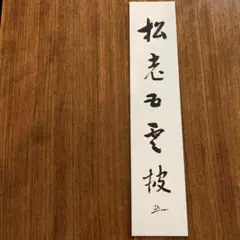 松老雲披